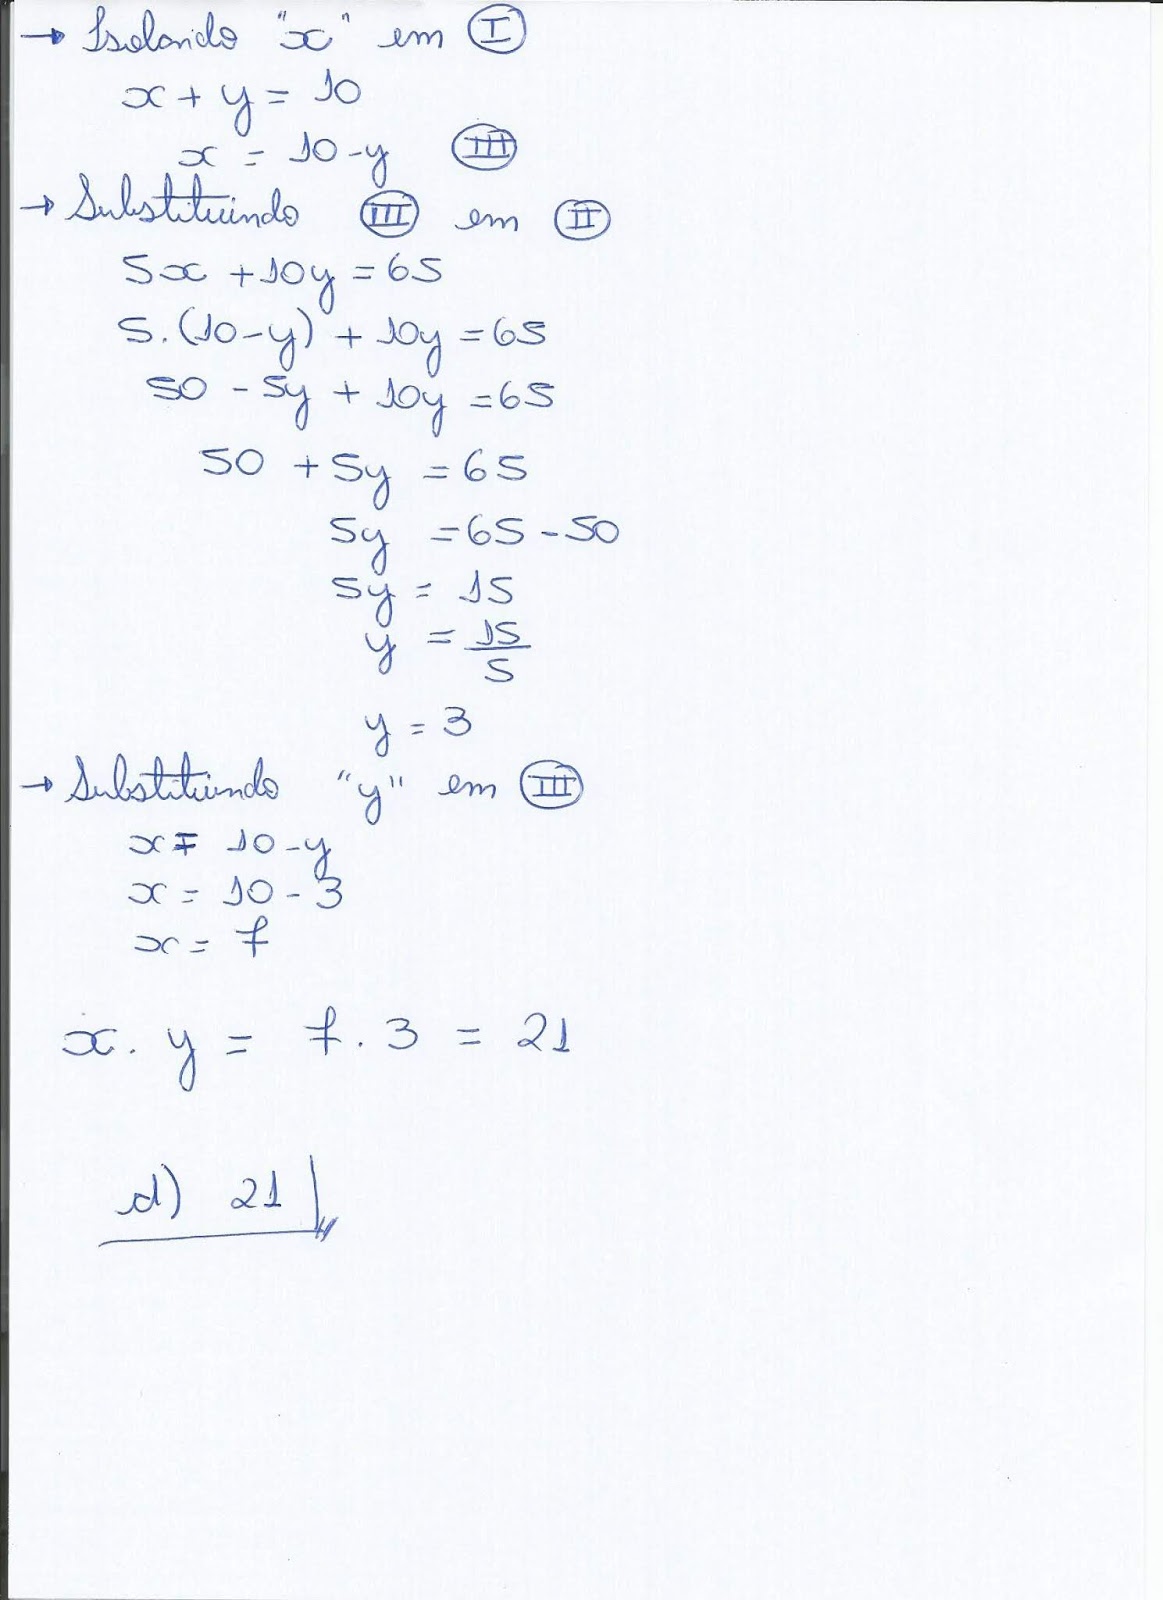 → Isolando "x" em I
x + y = 10
x = 10 - y III
→ Substituindo III em II
5x + 10y = 65
5.(10-y) + 10y = 65
50 - 5y + 10y = 65
50 + 5y = 65
5y = 65 - 50
5y = 15
y = 15/5
y = 3
→ Substituindo "y" em III
x = 10 - y
x = 10 - 3
x = 7
x. y = 7. 3 = 21
d) 21